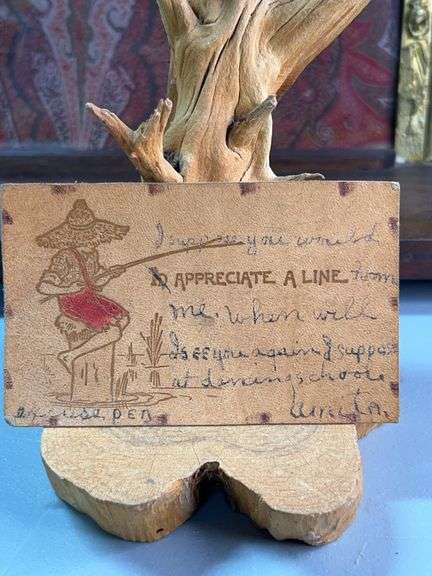 I suppose you would
APPRECIATE A LINE from
me. when will
I see you again I suppose
at dancing school.
excuse pen